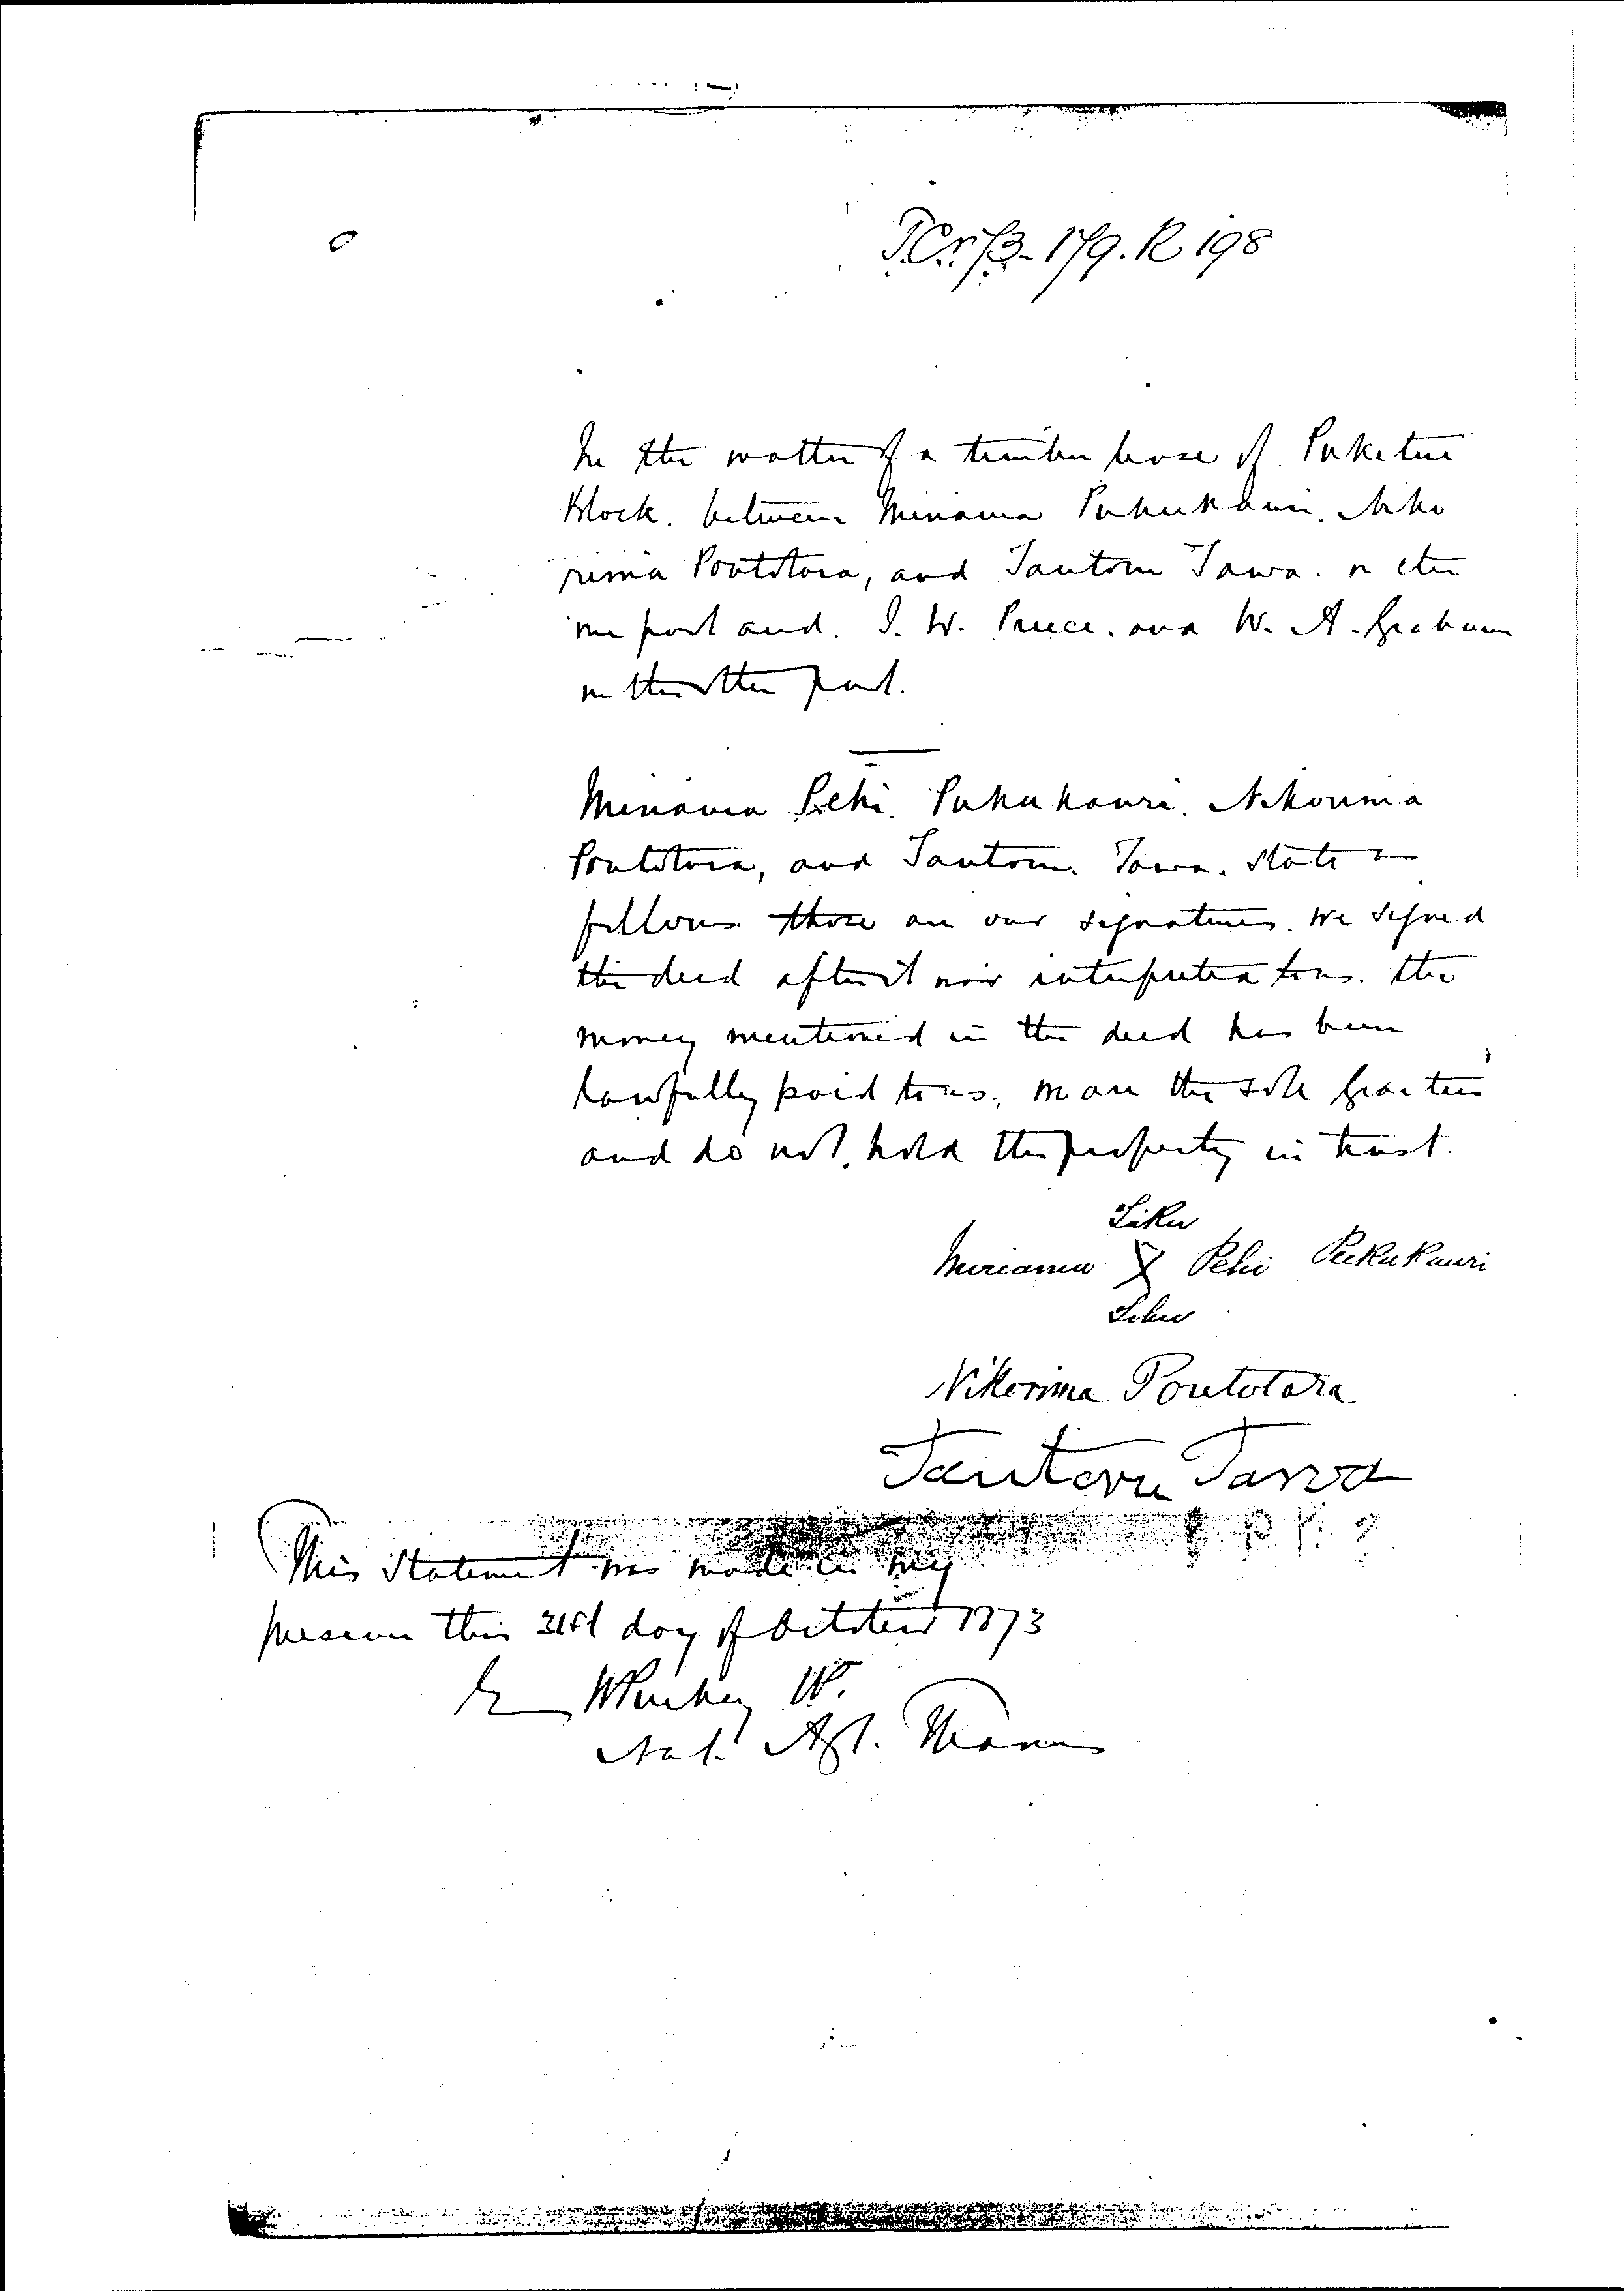 In the matter of a timber lease of Puketui
Block. between Miriama Pukukauri. Niko
rima Poutotara, and Tautoru Tawa. on the
one part and. J. W. Preece. and W. A. Graham
on the other part.
Miriama Pehi. Pukukauri. Nikorima
Poutotara, and Tautoru. Tawa. state as
follows those are our signatures. We signed
the deed after it was interpreted to us. the
money mentioned in the deed has been
lawfully paid to us, we are the sole grantees
and do not hold the property in trust.
Miriama X Pehi Pukukauri
Nikorima Poutotara
Tautoru Tawa
This Statement was made in my
presence this 31st day of October 1873
E W Puckey
Nat. Agt. Thames